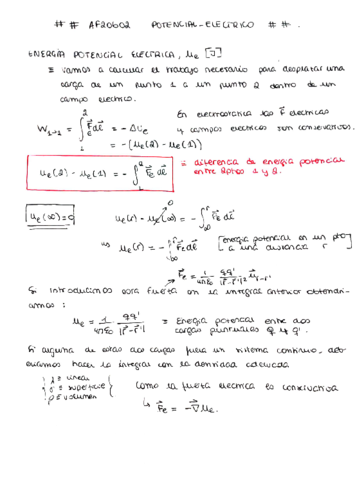 # # AF20602 POTENCIAL-ELÉCTRICO # #.
ENERGÍA POTENCIAL ELÉCTRICA, Ue [J]
≡ vamos a calcular el trabajo necesario para desplazar una
carga de un punto 1 a un punto 2 dentro de un
campo electrico.
En electrostatica las F electricas
y campos electricos son conservativos.
W1→2 = ∫₁² F⃗e dl⃗ = -ΔUe
= -(Ue(2) - Ue(1))
Ue(2) - Ue(1) = -∫₁² F⃗e dl⃗ ≡ diferencia de energia potencial
entre 2ptos 1 y 2.
Ue(∞)=0 Ue(r) - Ue(∞) = -∫∞ʳ F⃗e dl⃗
0
⇒ Ue(r) = -∫∞ʳ F⃗e dl⃗ [energia potencial en un pto
a una distancia r]
F⃗e = 1/4πε0 qq'/|r⃗-r⃗'|² u⃗r-r'
Si introducimos esta fuerza en la integral anterior obtendri-
amos :
Ue = 1/4πε0 qq'/|r⃗-r⃗'| ≡ Energia potencial entre dos
cargas puntuales q y q'.
Si alguna de estas dos cargas fuera un sistema continuo, deb-
eriamos hacer la integral con la densidad adecuada
{ λ ≡ lineal
σ ≡ superficie
ρ ≡ volumen }
Como la fuerza electrica es conservativa
↳ F⃗e = -∇⃗Ue.